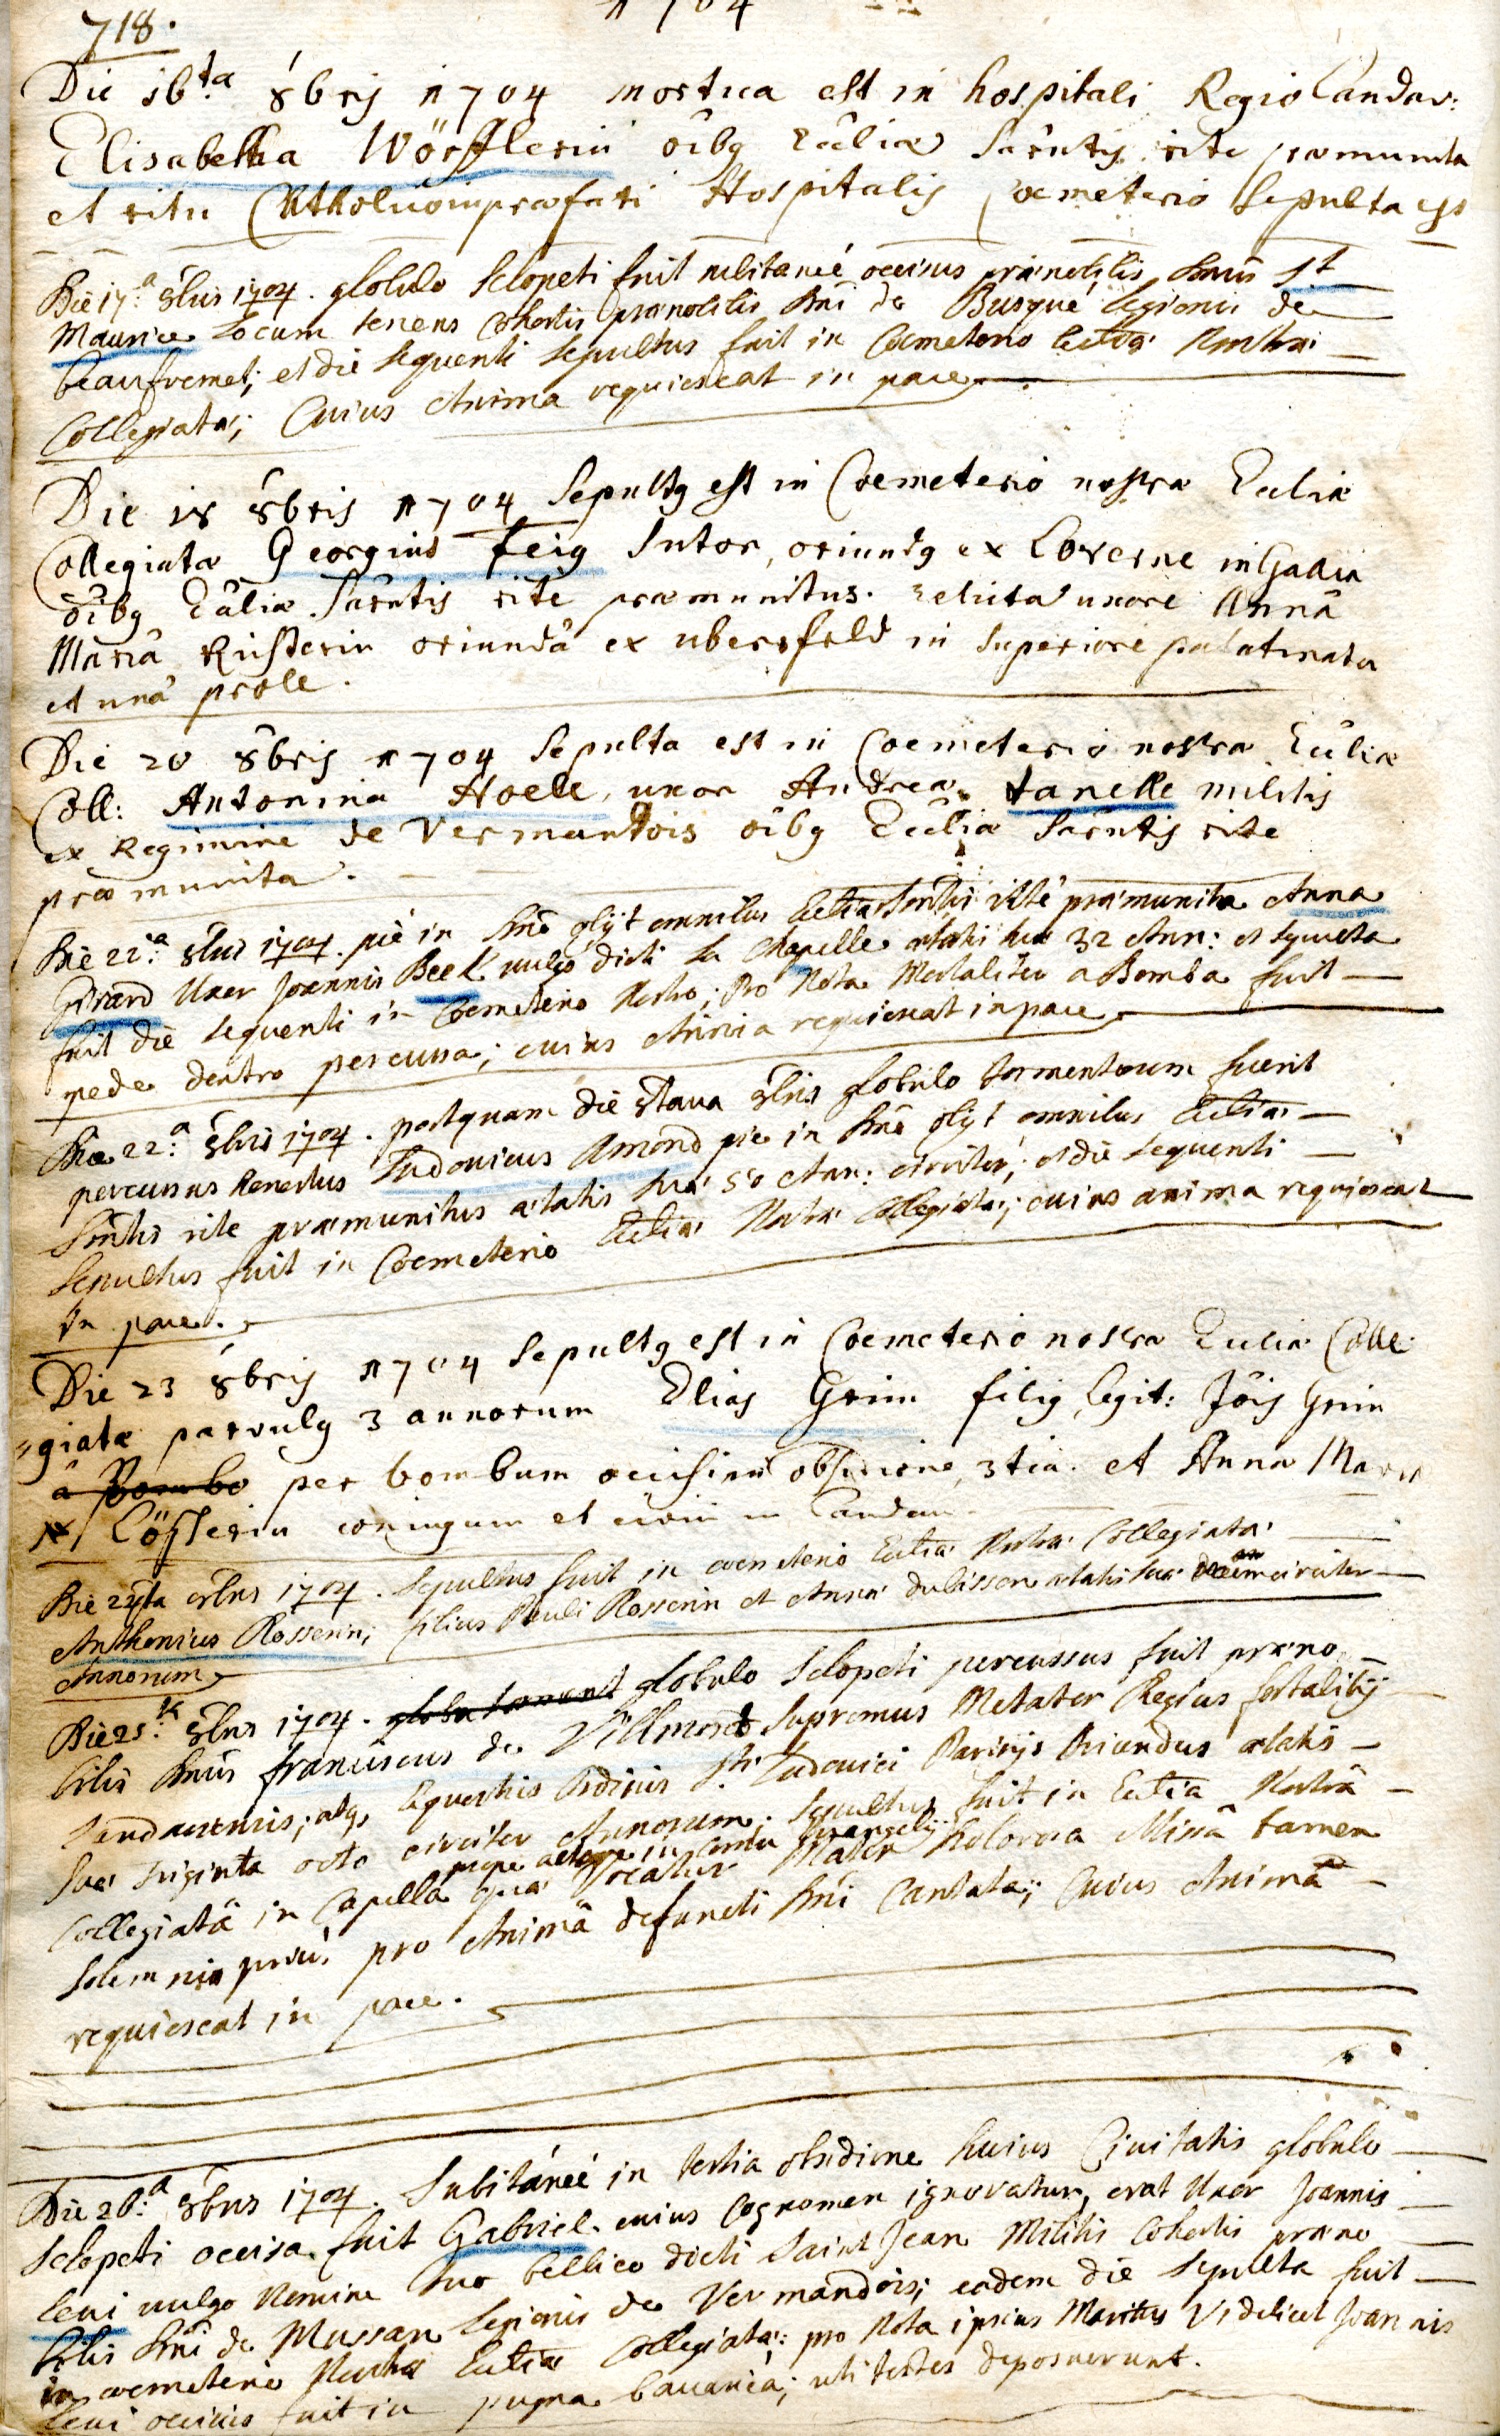 718.
1704
Die 16.ta 8bris 1704 mortua est in hospitali Regio Landav:
Elisabetha Wörsflerin oîbg Eccliæ Sacrntis rite præmunita
et ritu Catholico in præfati Hospitalis Coemeterio Sepulta est
Die 17.a 8bris 1704. globulo Sclopeti fuit subitaneè occisus prænobilis Dnus St
Maurice Locum tenens Cohortis prænobilis Dni de Busque Legionis de
beaufremet; et die sequenti sepultus fuit in Coemeterio Ecclæ Nostræ
Collegiatæ; Cuius Anima requiescat in pace.
Die 18 8bris 1704 Sepultg est in Coemeterio nostræ Eccliæ
Collegiatæ Georgius feig Sutor, oriundg ex Loverne in Gallia
oîbg Eccliæ Sacrntis ritè præmunitus. relicta uxore Annâ
Mariâ Risterin oriundâ ex ubersfeld in Superiore palatinatu
et unâ prole.
Die 20 8bris 1704 Sepulta est in Coemeterio nostræ Eccliæ
Coll: Antonina Noele, uxor Andreæ tanelle militis
ex Regimine de Vermantois oîbg Eccliæ Sacrntis rite
præmunita.
Die 22.a 8bris 1704. piè in Dno obijt omnibus Ecclæ Sacrntis ritè præmunita Anna
Girard Uxor Joannis Beek vulgò dicti La Chapelle ætatis suæ 32 Ann: et sepulta
fuit die sequenti in Coemeterio Nostro; Pro Nota Mortaliter a Bomba fuit
pede dextro percussa; cuius Anima requiescat in pace.
Die 22.a 8bris 1704. postquam die 8tava 8bris globulo tormentorum fuerit
percussus Honestus Ludovicus Amond pie in Dno obijt omnibus Ecclæ
Sacrntis rite præmunitus ætatis suæ 50 Ann: circiter; et die sequenti
Sepultus fuit in Coemeterio Ecclæ Nostræ Collegiatæ; cuius anima requiescat
in pace.
Die 23 8bris 1704 Sepultg est in Coemeterio nostræ Eccliæ Colle
giatæ parvulg 3 annorum Elias Grim filig legit: Jôis Grim
â Bombo per bombum occisim obsidione 3tia. et Anna Maria
Löflerin coniugum et civiu in Landau
Die 24ta 8bris 1704. Sepultus fuit in coemeterio Ecclæ Nostræ Collegiatæ
Anthonius Rosserin; filius Pauli Rosserin et Annæ dubisson ætatis suæ decim circiter
Annorum
Die 25.ta 8bris 1704. globu torment globulo Sclopeti percussus fuit præno
bilis Dnus franciscus de Villmond Supremus Metator Regius fortalitij
Landavensis; atq; Equestris Ordinis Sti. Ludovici Parisijs Oriundus ætatis
suæ triginta octo circiter Annorum; Sepultus fuit in Ecclia Nostrâ
prope altare in cornu Evangelij
Collegiatâ in Capella quæ vocatur Mater Dolorosa Missâ tamen
Solemni priùs pro Animâ defuncti Dni Cantata; Cuius Anima
requiescat in pace.
Die 26.a 8bris 1704. Subitáneè in tertia obsidione huius Civitatis globulo
Sclopeti occisa fuit Gabriel. cuius Cognomen ignoratur, erat Uxor Joannis
Leui vulgo Nomine suo bellico dicti Saint Jean Militis Cohortis præno
bilis Dni de Mussan Legionis de Vermandois; eadem die Sepulta fuit
in coemeterio Nostræ Ecclæ Collegiatæ: pro Nota ipsius Maritus Videlicet Joannis
Leui occisus fuit in pugna bauarica; uti testes deposuerunt.